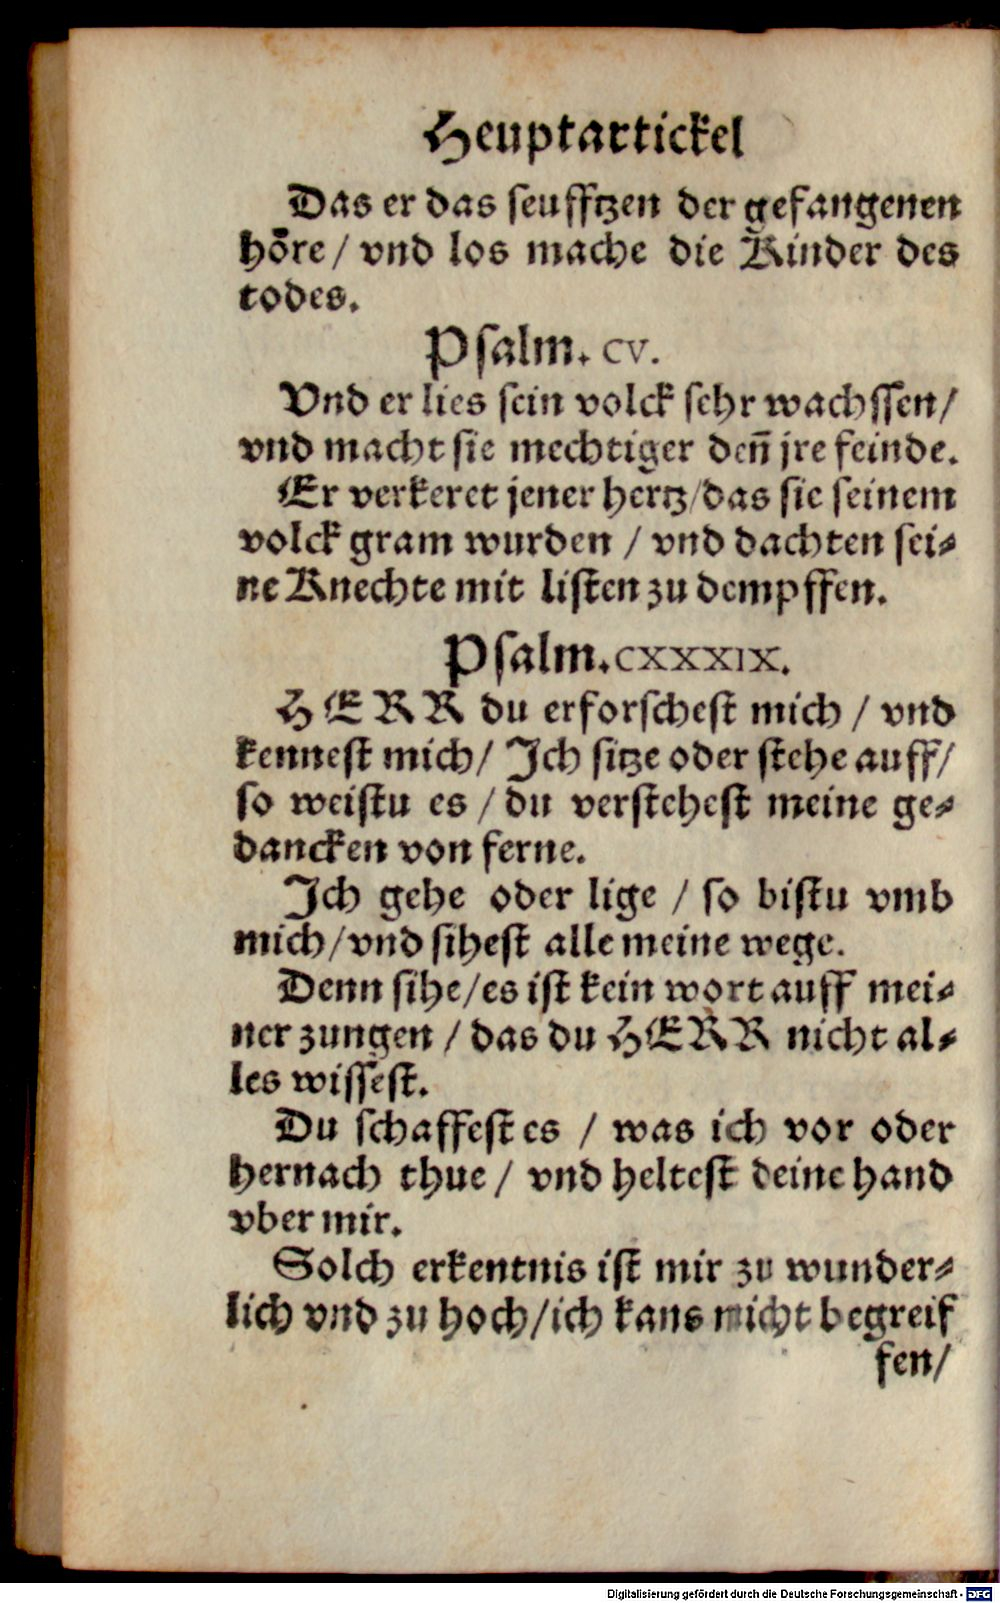 Heuptartickel
Das er das seufftzen der gefangenen
höre / vnd los mache die Kinder des
todes.
Psalm. CV.
Vnd er lies sein volck sehr wachssen /
vnd macht sie mechtiger deñ jre feinde.
Er verkeret jener hertz / das sie seinem
volck gram wurden / vnd dachten sei-
ne Knechte mit listen zu dempffen.
Psalm. CXXXIX.
HERR du erforschest mich / vnd
kennest mich / Ich sitze oder stehe auff /
so weistu es / du verstehest meine ge-
dancken von ferne.
Ich gehe oder lige / so bistu vmb
mich / vnd sihest alle meine wege.
Denn sihe / es ist kein wort auff mei-
ner zungen / das du HERR nicht al-
les wissest.
Du schaffest es / was ich vor oder
hernach thue / vnd heltest deine hand
vber mir.
Solch erkentnis ist mir zu wunder-
lich vnd zu hoch / ich kans nicht begreif
fen /
Digitalisierung gefördert durch die Deutsche Forschungsgemeinschaft - DFG